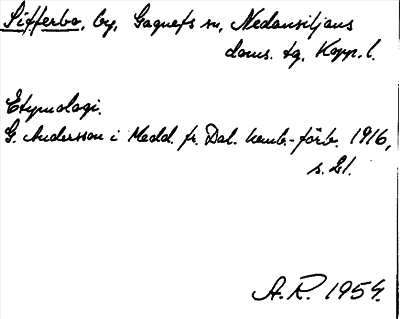 Sifferbo, by, Gagnefs sn, Nedansiljans
doms. tg, Kopp. l.
Etymologi.
G. Andersson i Medd. fr. Dal. hemb.-förb. 1916,
s. 21.
A.R. 1954.